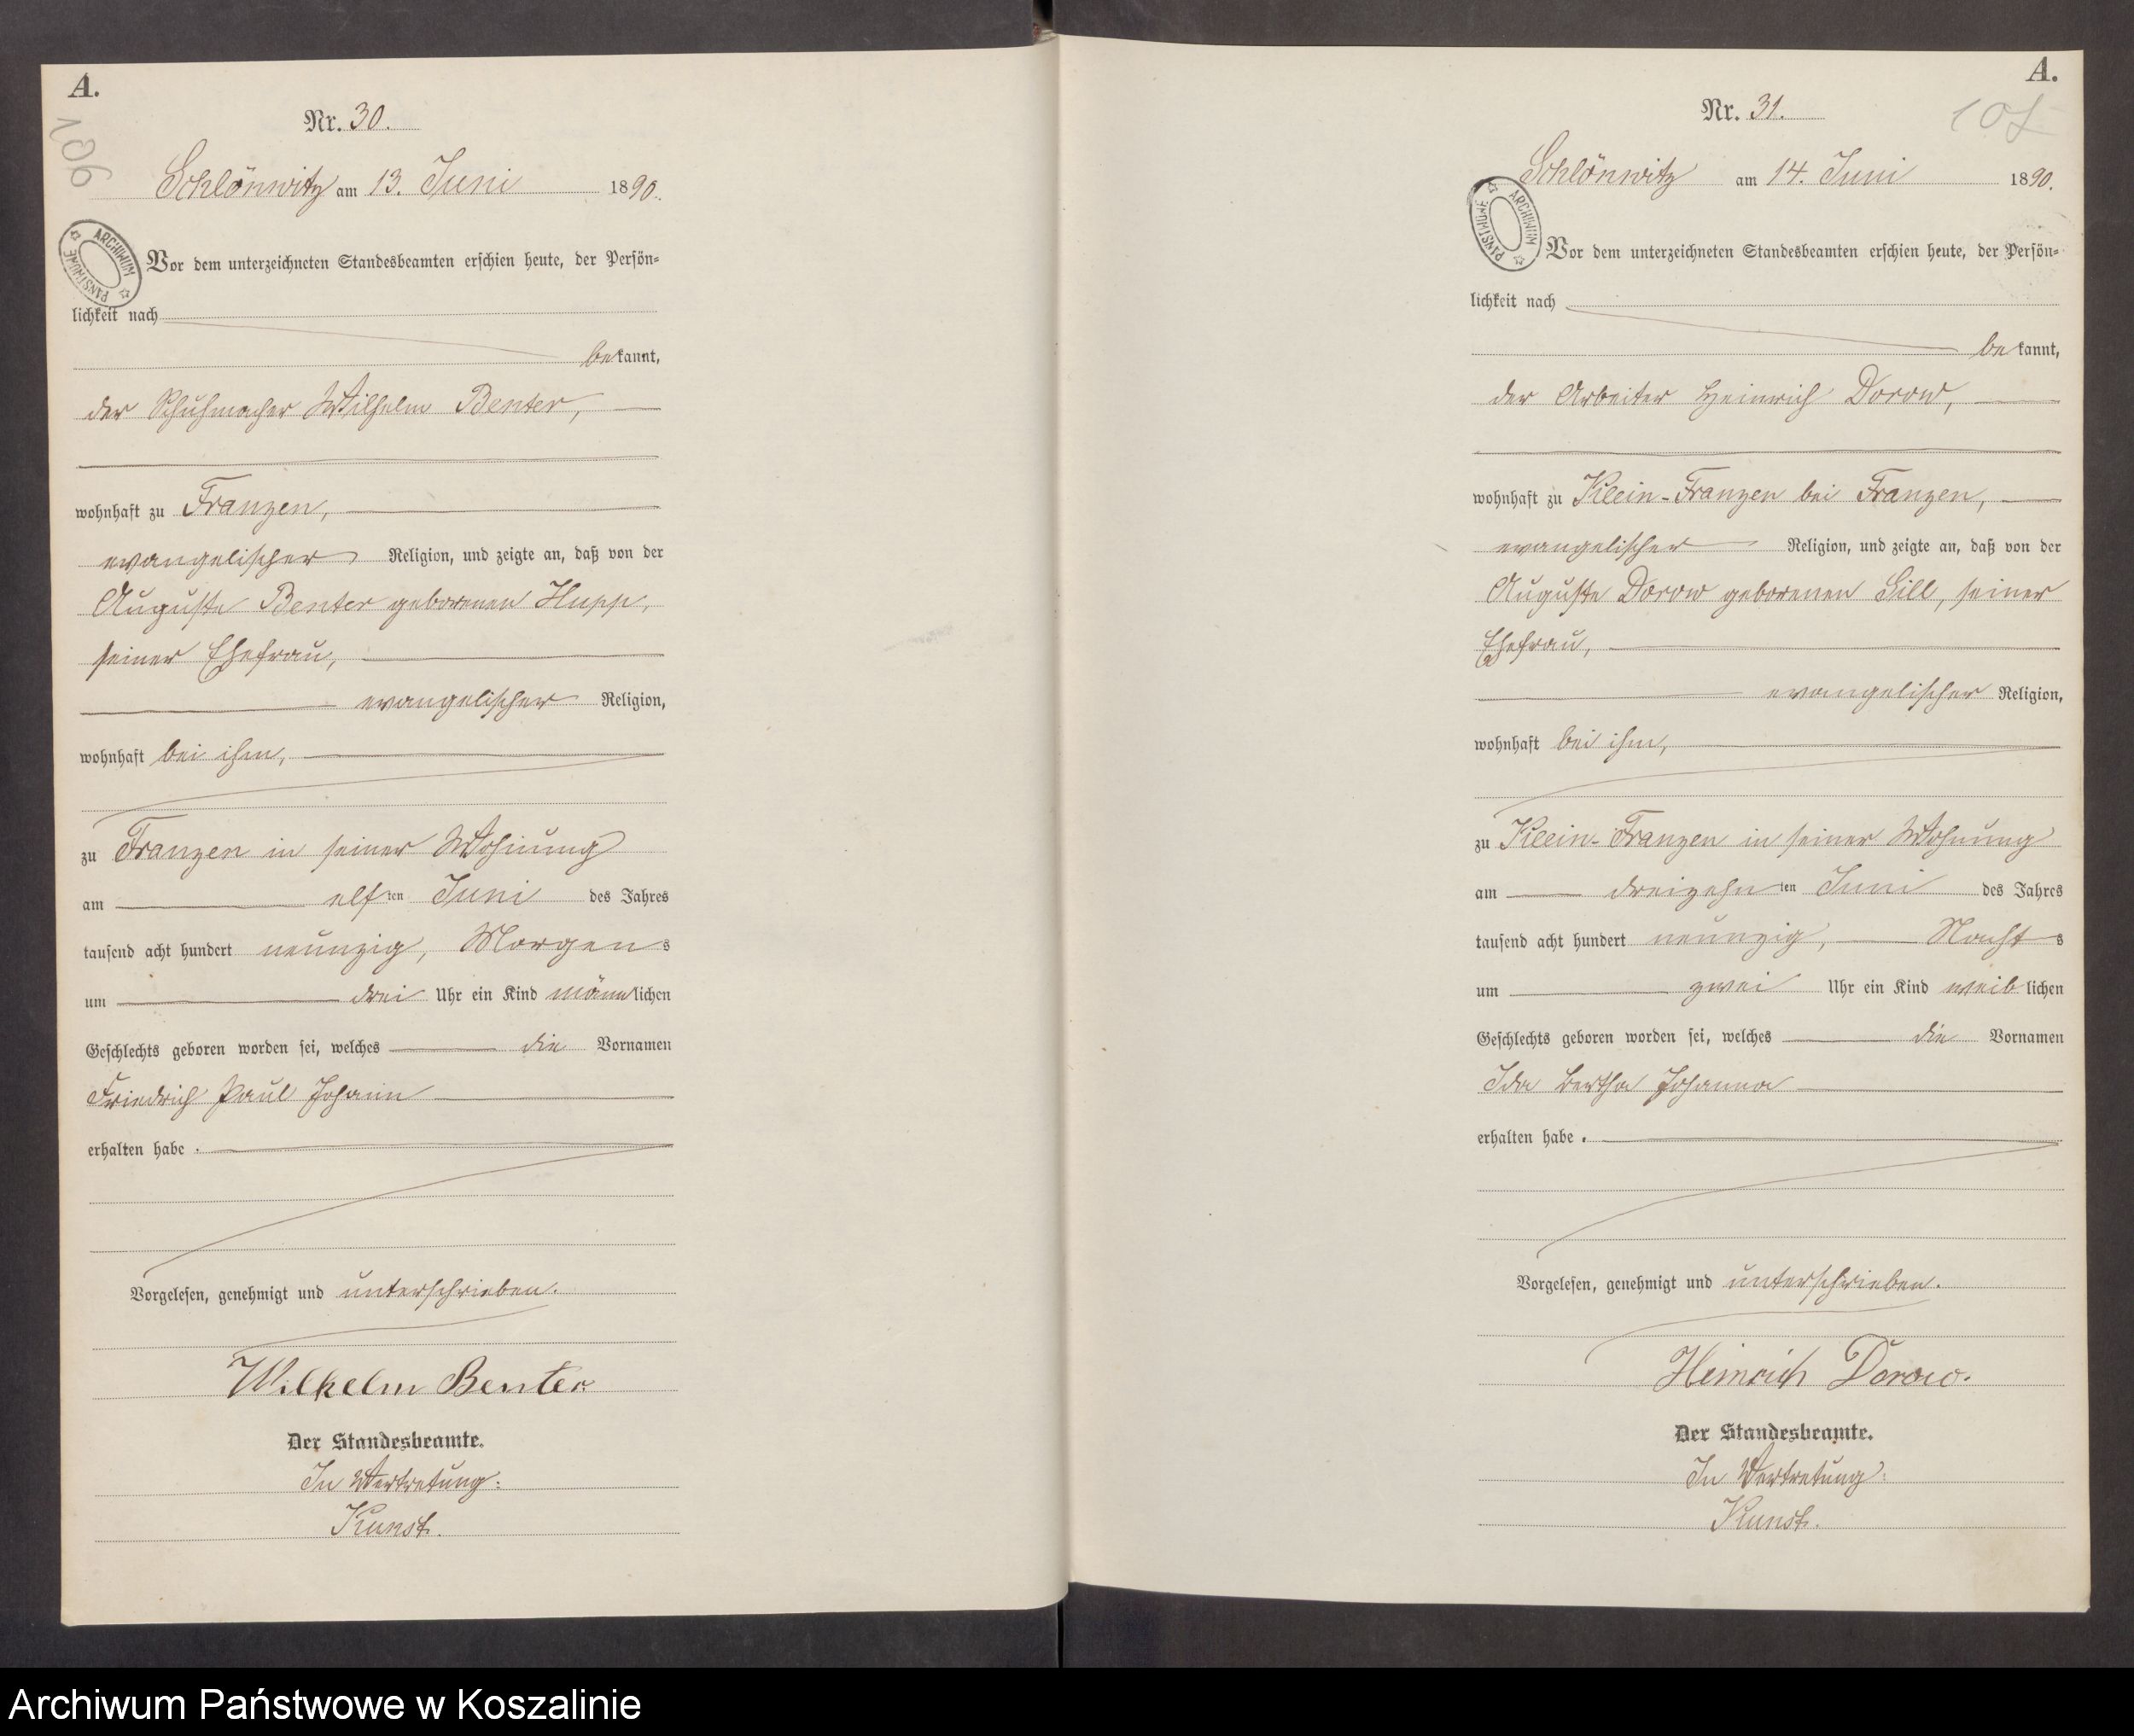 A.
106
Nr. 30.
Schlönwitz am 13. Juni 1890.
ARCHIWUM PAŃSTWOWE
Vor dem unterzeichneten Standesbeamten erschien heute, der Persön-
lichkeit nach
bekannt,
der Schuhmacher Wilhelm Benter,
wohnhaft zu Franzen,
evangelischer Religion, und zeigte an, daß von der
Auguste Benter geborenen Hupp,
seiner Ehefrau,
evangelischer Religion,
wohnhaft bei ihm,
zu Franzen in seiner Wohnung
am elften Juni des Jahres
tausend acht hundert neunzig, Morgens
um drei Uhr ein Kind männlichen
Geschlechts geboren worden sei, welches die Vornamen
Friedrich Paul Johann
erhalten habe.
Vorgelesen, genehmigt und unterschrieben.
Wilhelm Benter
Der Standesbeamte.
In Vertretung:
Kunst.
A.
107
Nr. 31.
Schlönwitz am 14. Juni 1890.
ARCHIWUM PAŃSTWOWE
Vor dem unterzeichneten Standesbeamten erschien heute, der Persön-
lichkeit nach
bekannt,
der Arbeiter Heinrich Dorow,
wohnhaft zu Klein-Franzen bei Franzen,
evangelischer Religion, und zeigte an, daß von der
Auguste Dorow geborenen Sill, seiner
Ehefrau,
evangelischer Religion,
wohnhaft bei ihm,
zu Klein-Franzen in seiner Wohnung
am dreizehnten Juni des Jahres
tausend acht hundert neunzig, Nachts
um zwei Uhr ein Kind weiblichen
Geschlechts geboren worden sei, welches die Vornamen
Ida Bertha Johanna
erhalten habe.
Vorgelesen, genehmigt und unterschrieben.
Heinrich Dorow.
Der Standesbeamte.
In Vertretung:
Kunst.
Archiwum Państwowe w Koszalinie